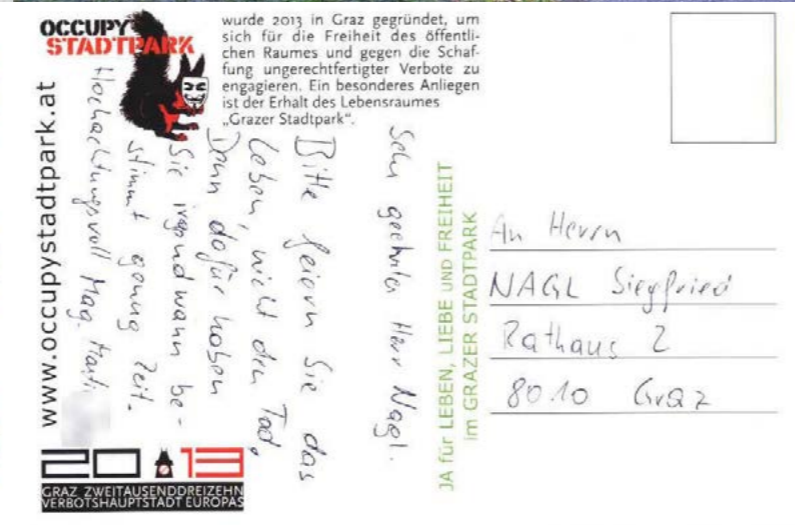 OCCUPY
STADTPARK
wurde 2013 in Graz gegründet, um
sich für die Freiheit des öffentli-
chen Raumes und gegen die Schaf-
fung ungerechtfertigter Verbote zu
engagieren. Ein besonderes Anliegen
ist der Erhalt des Lebensraumes
„Grazer Stadtpark“.
www.occupystadtpark.at
Sehr geehrter Herr Nagl.
Bitte feiern Sie das
Leben, nicht den Tod.
Denn dafür haben
Sie irgendwann be-
stimmt genug Zeit.
Hochachtungsvoll Mag.
JA für LEBEN, LIEBE UND FREIHEIT
im GRAZER STADTPARK
An Herrn
NAGL Siegfried
Rathaus 2
8010 Graz
2013
GRAZ ZWEITAUSENDDREIZEHN
VERBOTSHAUPTSTADT EUROPAS